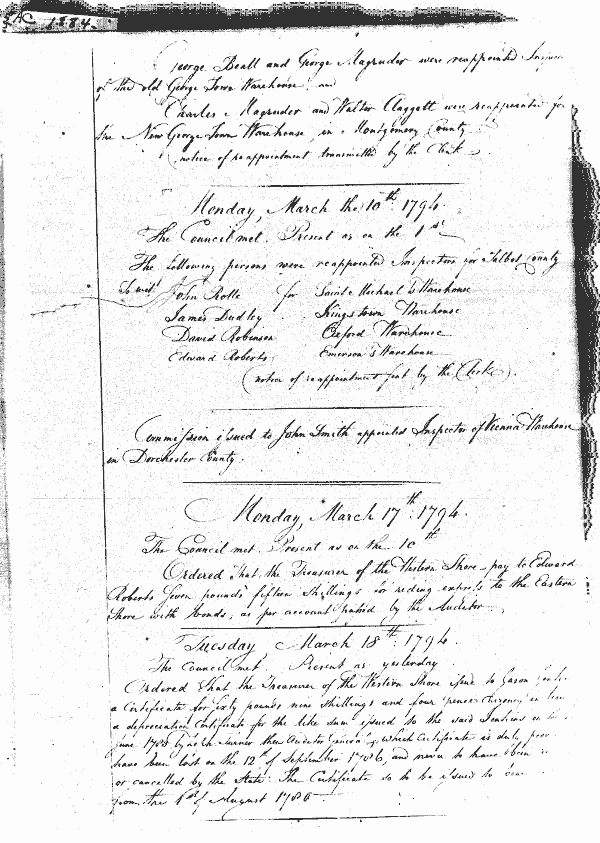 1884.
George Beall and George Magruder were reappointed
of the old George Town Warehouse; and
Charles Magruder and Walter Claggett were reappointed for
the New George Town Warehouse, in Montgomery County
(notice of reappointment transmitted by the Clerk
Monday, March the 10th 1794.
The Council met. Present as on the 1st
The following persons were reappointed Inspectors for Talbot County
To wit: John Rolle for Saint Michael's Warehouse
James Dudley Kings Town Warehouse
David Robinson Oxford Warehouse
Edward Roberts Emerson's Warehouse
(notice of reappointment sent by the Clerk).
Commission issued to John Smith appointed Inspector of Vienna Warehouse
in Dorchester County.
Monday, March 17th 1794.
The Council met. Present as on the 10th
Ordered That the Treasurer of the Western Shore pay to Edward
Roberts pounds fifteen shillings for riding express to the Eastern
Shore with Bonds, as per account passed by the Auditor
Tuesday, March 18th 1794.
The Council met. Present as yesterday.
Ordered That the Treasurer of the Western Shore issue to Jason
a Certificate for sixty pounds nine shillings and four pence
a depreciation Certificate for the like sum issued to the said Jenkins
June which Certificate is duly
have been lost on the 12th of September 1786, and never to have been
or cancelled by the State. The Certificate so to be issued to
from the 1st of August 1780